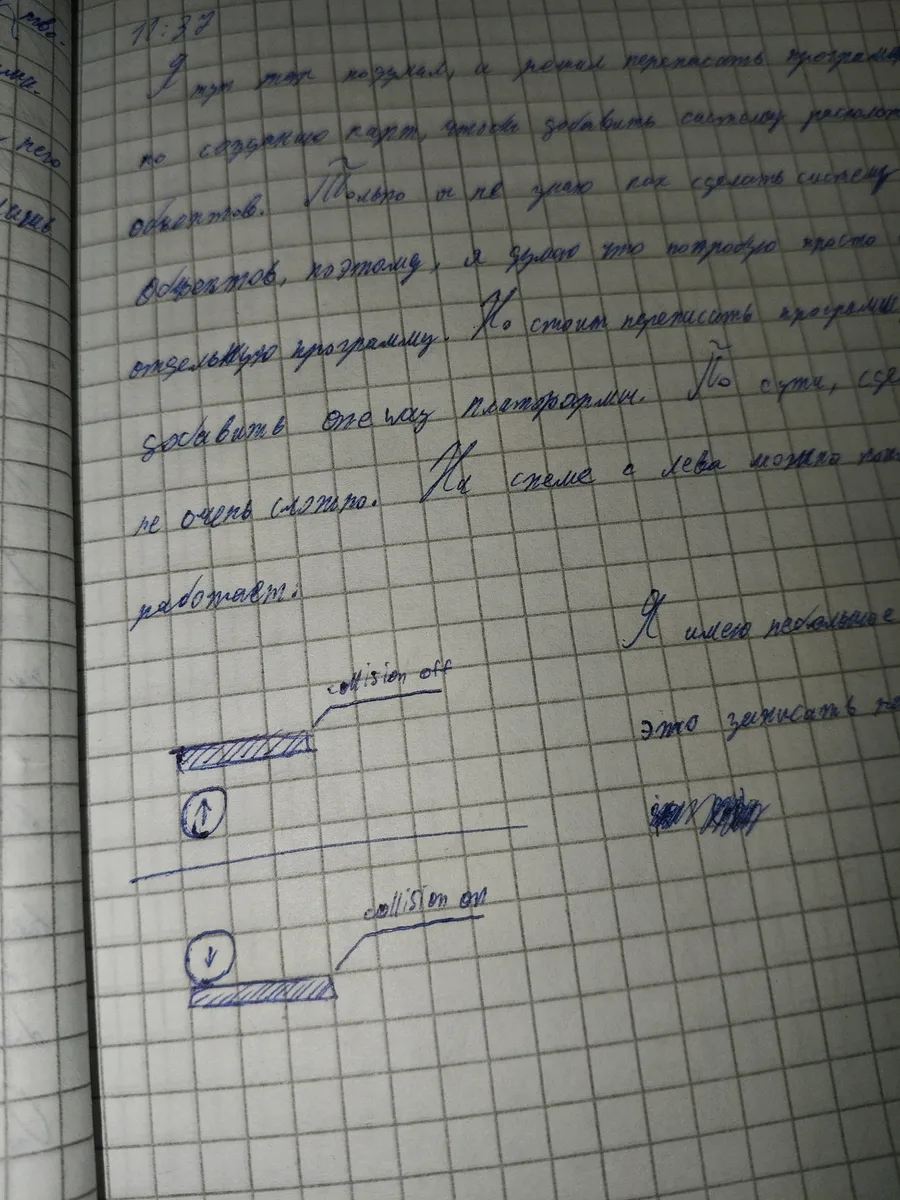 тво-
него
11:37
Я тут так подумал, и решил переписать програм
по созданию карт, чтобы добавить систему располож
объектов. Только я не знаю как сделать систему
объектов, поэтому, я думаю что попробую просто
отдельную программу. Но стоит переписать программ
добавить one way платформы. По сути, сде
не очень сложно. На схеме с лева можно
работает:
Я имею небольшое
collision off
это записать
collision on